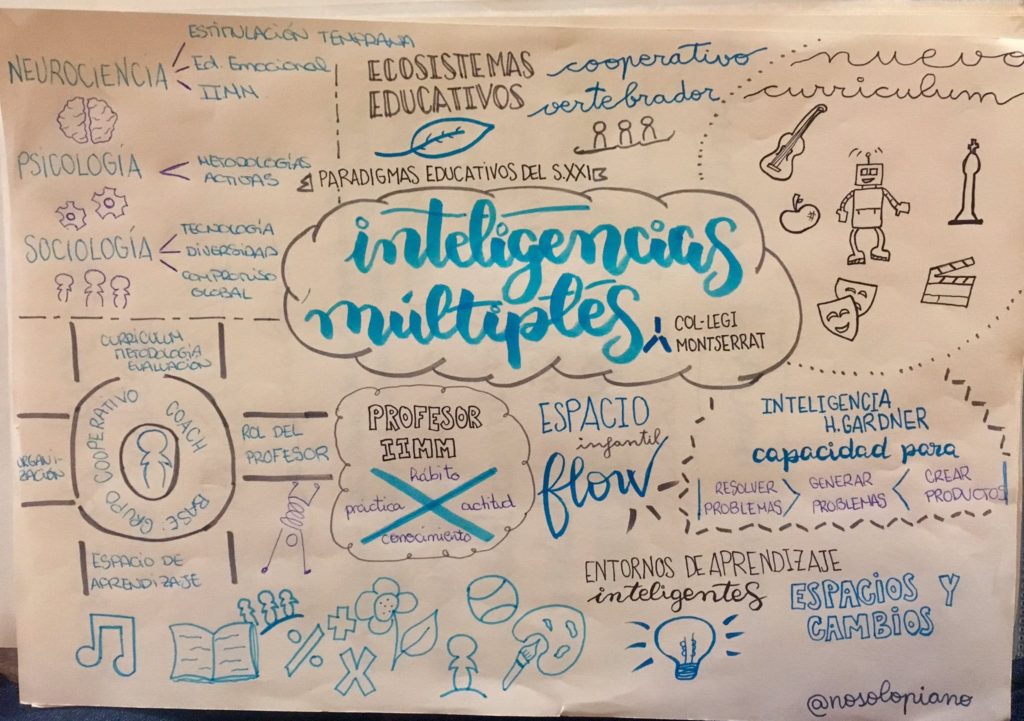 NEUROCIENCIA
ESTIMULACIÓN TEMPRANA
Ed. Emocional
IIMM
PSICOLOGÍA
METODOLOGÍAS
ACTIVAS
SOCIOLOGÍA
TECNOLOGÍA
DIVERSIDAD
COMPROMISO
GLOBAL
ECOSISTEMAS
EDUCATIVOS
cooperativo
vertebrador
nuevo
curriculum
PARADIGMAS EDUCATIVOS DEL S.XXI
inteligencias
múltiples
COL·LEGI
MONTSERRAT
CURRÍCULUM
METODOLOGÍA
EVALUACIÓN
ORGANI-
ZACIÓN
BASE: GRUPO COOPERATIVO
COACH
ROL DEL
PROFESOR
ESPACIO DE
APRENDIZAJE
PROFESOR
IIMM
hábito
práctica
actitud
conocimiento
ESPACIO
infantil
flow
INTELIGENCIA
H. GARDNER
capacidad para
RESOLVER
PROBLEMAS
GENERAR
PROBLEMAS
CREAR
PRODUCTOS
ENTORNOS DE APRENDIZAJE
inteligentes
ESPACIOS Y
CAMBIOS
@nosolopiano